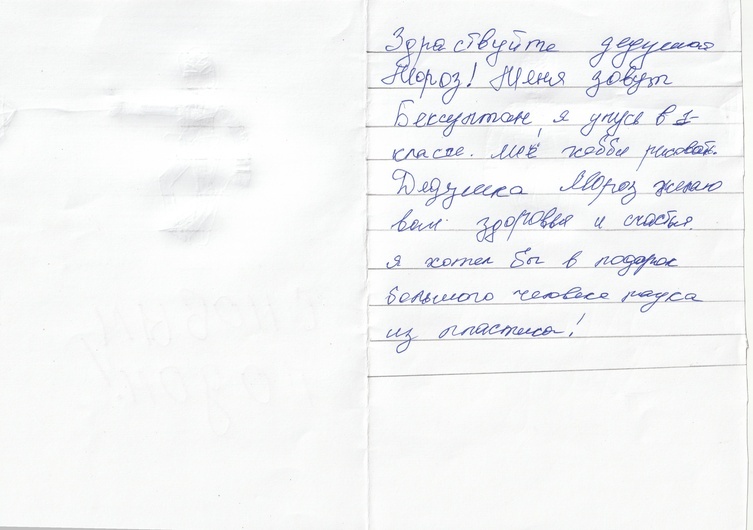 Здравствуйте дедушка
Мороз! Меня зовут
Бексултан, я учусь в 1-
классе. моё хобби рисовать.
Дедушка Мороз желаю
вам здоровья и счастья.
я хотел бы в подарок
большого человека паука
из пластика!